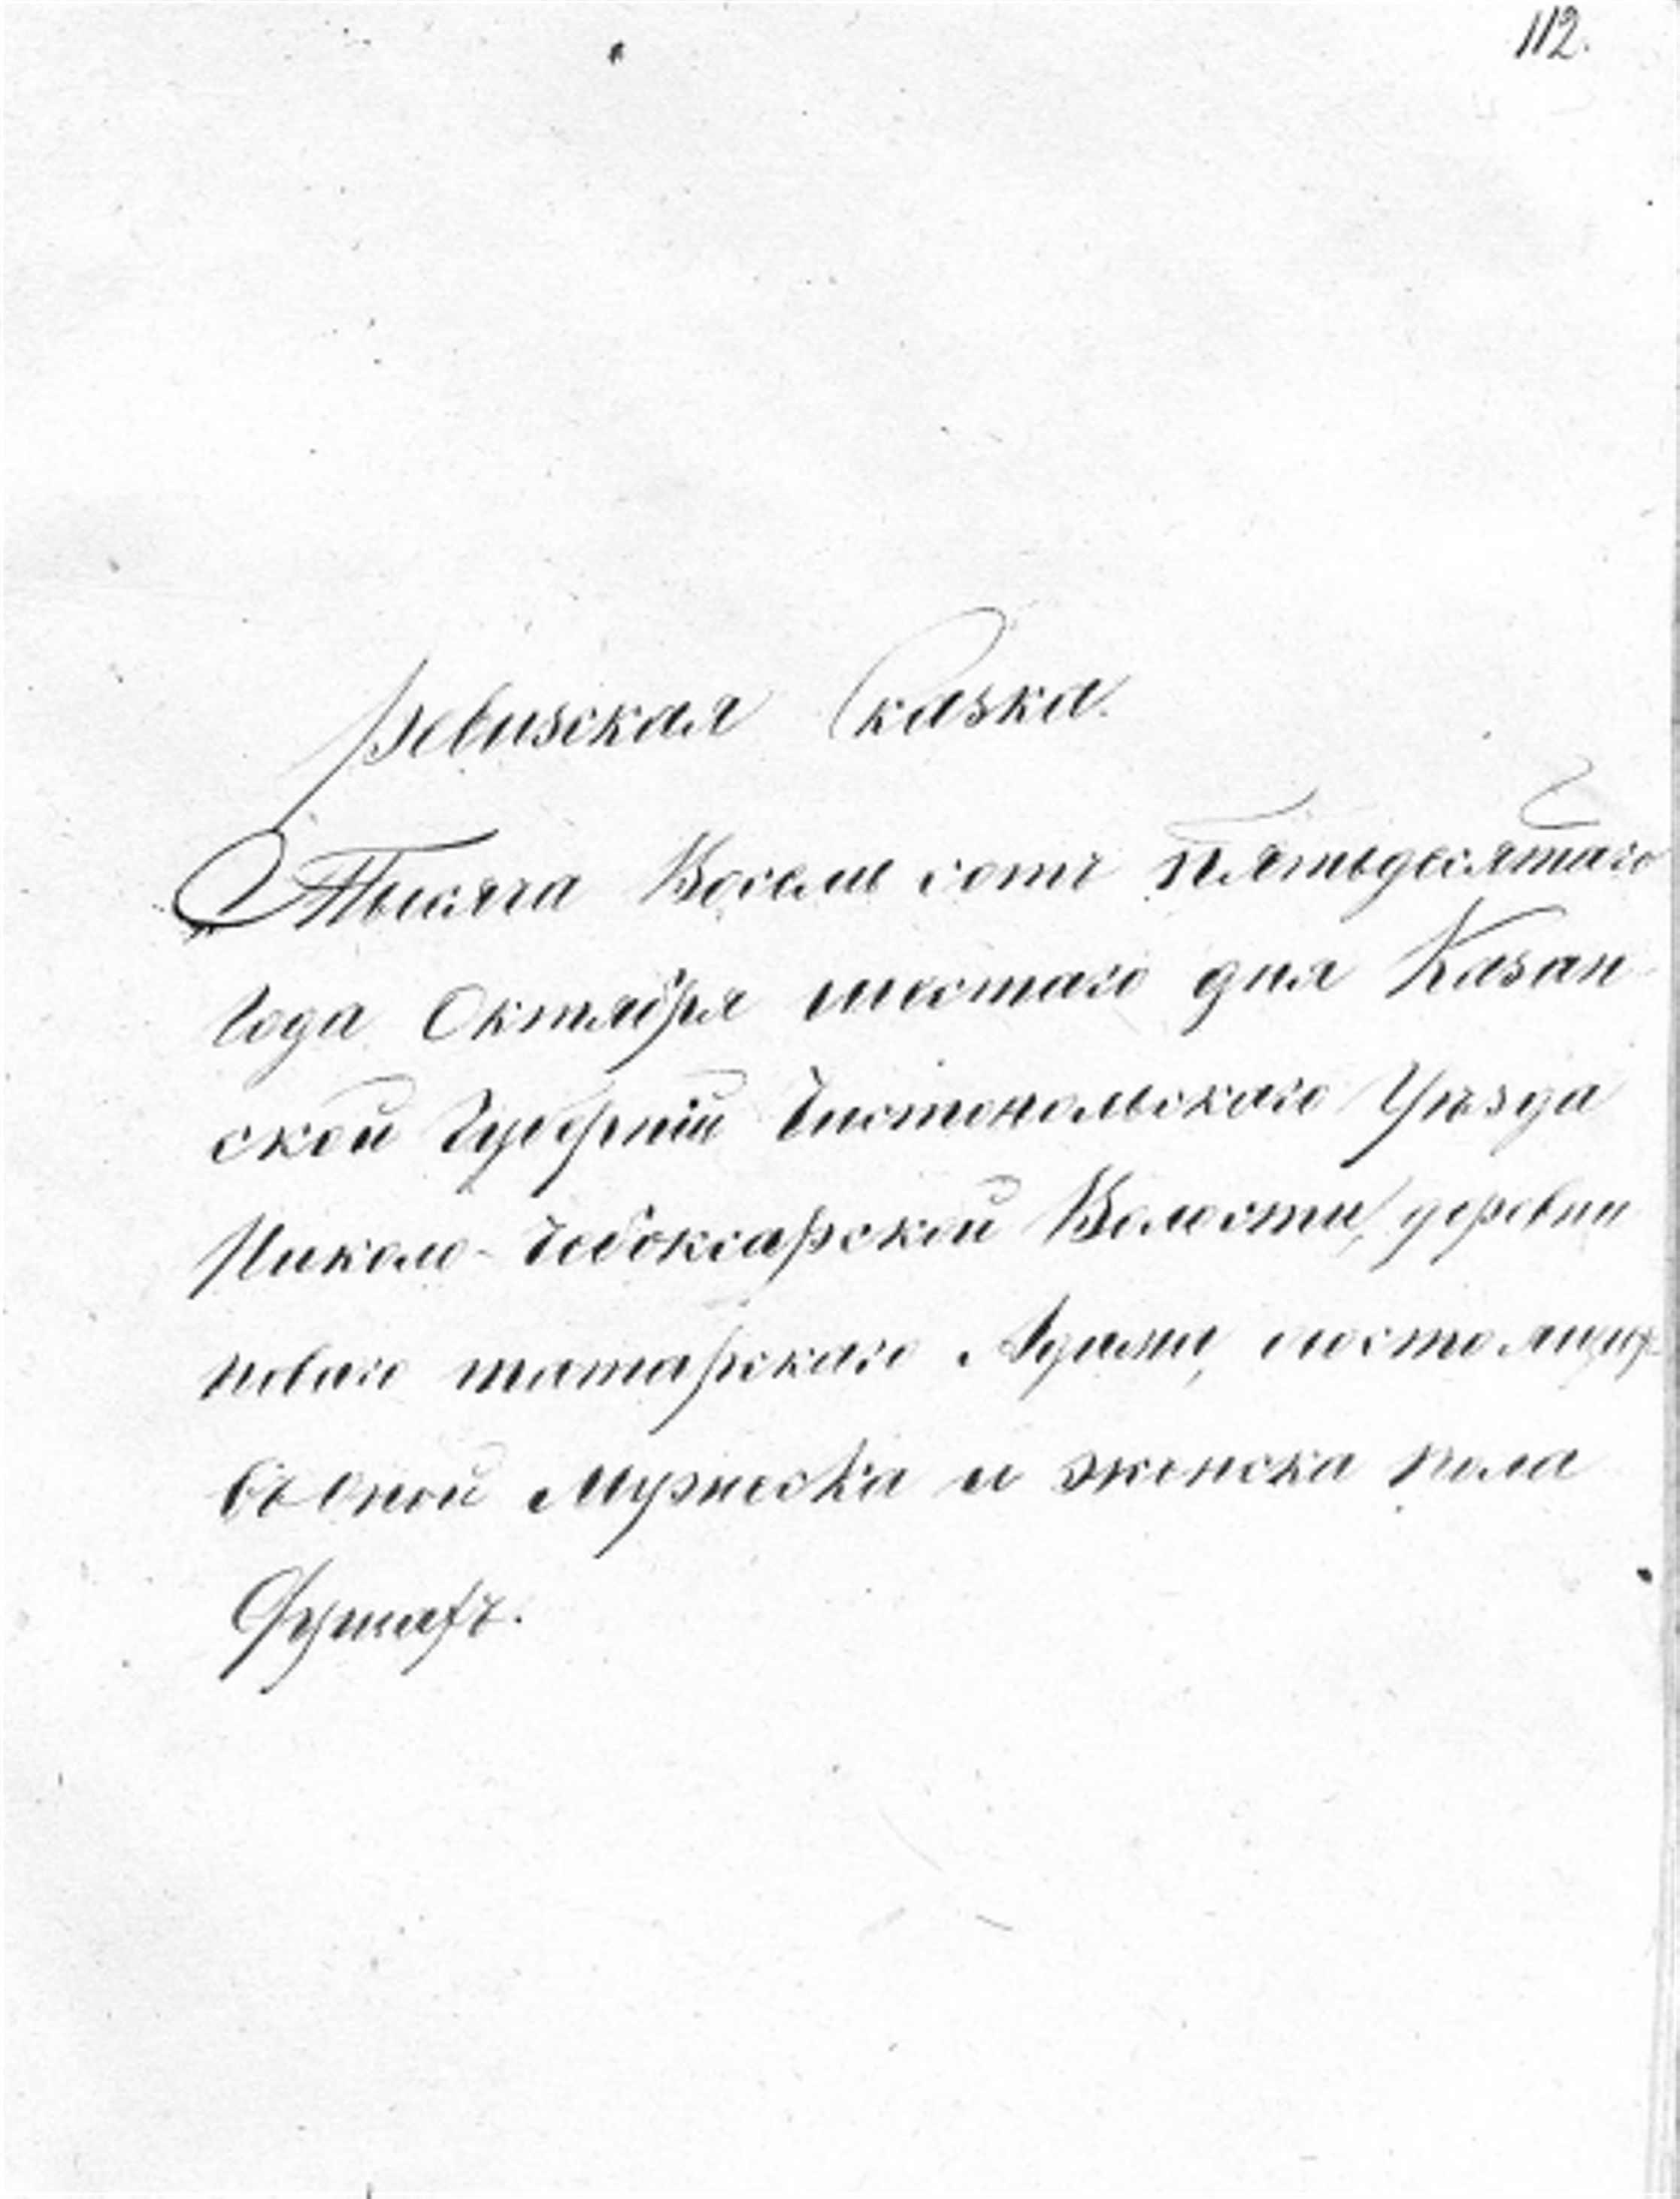 112.
Ревизская Сказка.
Тысяча Восемь сотъ Пятьдесятаго
года Октября шестаго дня Казан
ской Губерніи Чистопольскаго Уѣзда
Николо-Чебоксарской Волости, деревни
новаго татарскаго Адама, состоящих
въ оной Мужеска и женска пола
Душахъ.